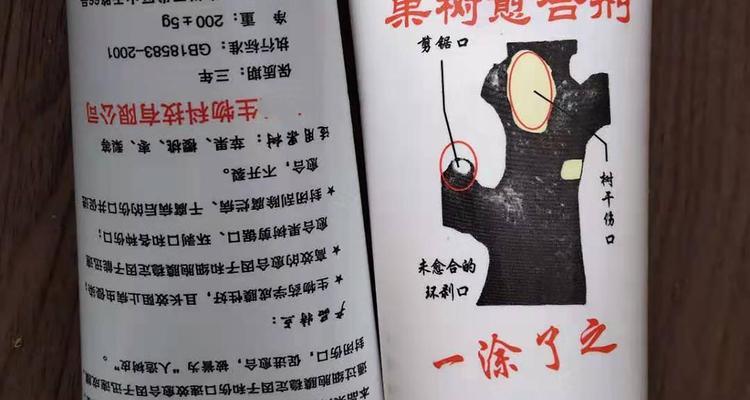 本品采
通过细胞膜稳定因子和伤口愈合因子迅速成膜,
封闭伤口,促进愈合,被誉为“人造树皮”。
产品特点:
★生物药学成膜性好,且长效阻止病虫侵染;
★高效的愈合因子和细胞膜稳定因子能迅速
愈合果树剪锯口、环剥口和各种伤口;
★封闭刮除腐烂病、干腐病后的伤口并促进
愈合,不开裂。
适用果树:苹果、樱桃、枣、梨等
生物科技有限公司
保质期:三年
执行标准:GB18583-2001
净 重:200±5g
果树愈合剂
剪锯口
树干伤口
未愈合的
环剥口
一涂了之